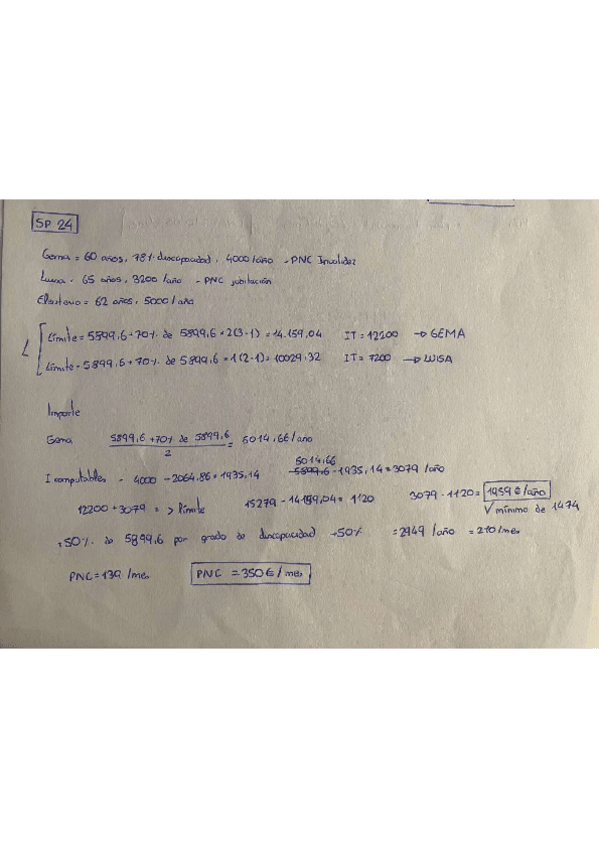 SP 24
Gema = 60 años, 78% discapacidad, 4000/año - PNC Invalidez
Luisa - 65 años, 3200/año - PNC jubilación
= 62 años, 5000/año
Límite = 5899,6 + 70% de 5899,6 × 2(3-1) = 14.159,04 IT = 12200 → GEMA
Límite = 5899,6 + 70% de 5899,6 × 1(2-1) = 10029,32 IT = 7200 → LUISA
Importe
Gema 5899,6 + 70% de 5899,6 / 2 = 5014,66/año
I computables - 4000 - 2064,86 = 1935,14 5014,66 5899,6 - 1935,14 = 3079 /año
12200 + 3079 = > límite 15279 - 14159,04 = 1120 3079 - 1120 = 1959 €/año
√ mínimo de 1474
+50% de 5899,6 por grado de discapacidad +50% = 2949 /año = 210/mes
PNC = 139 /mes PNC = 350 € / mes